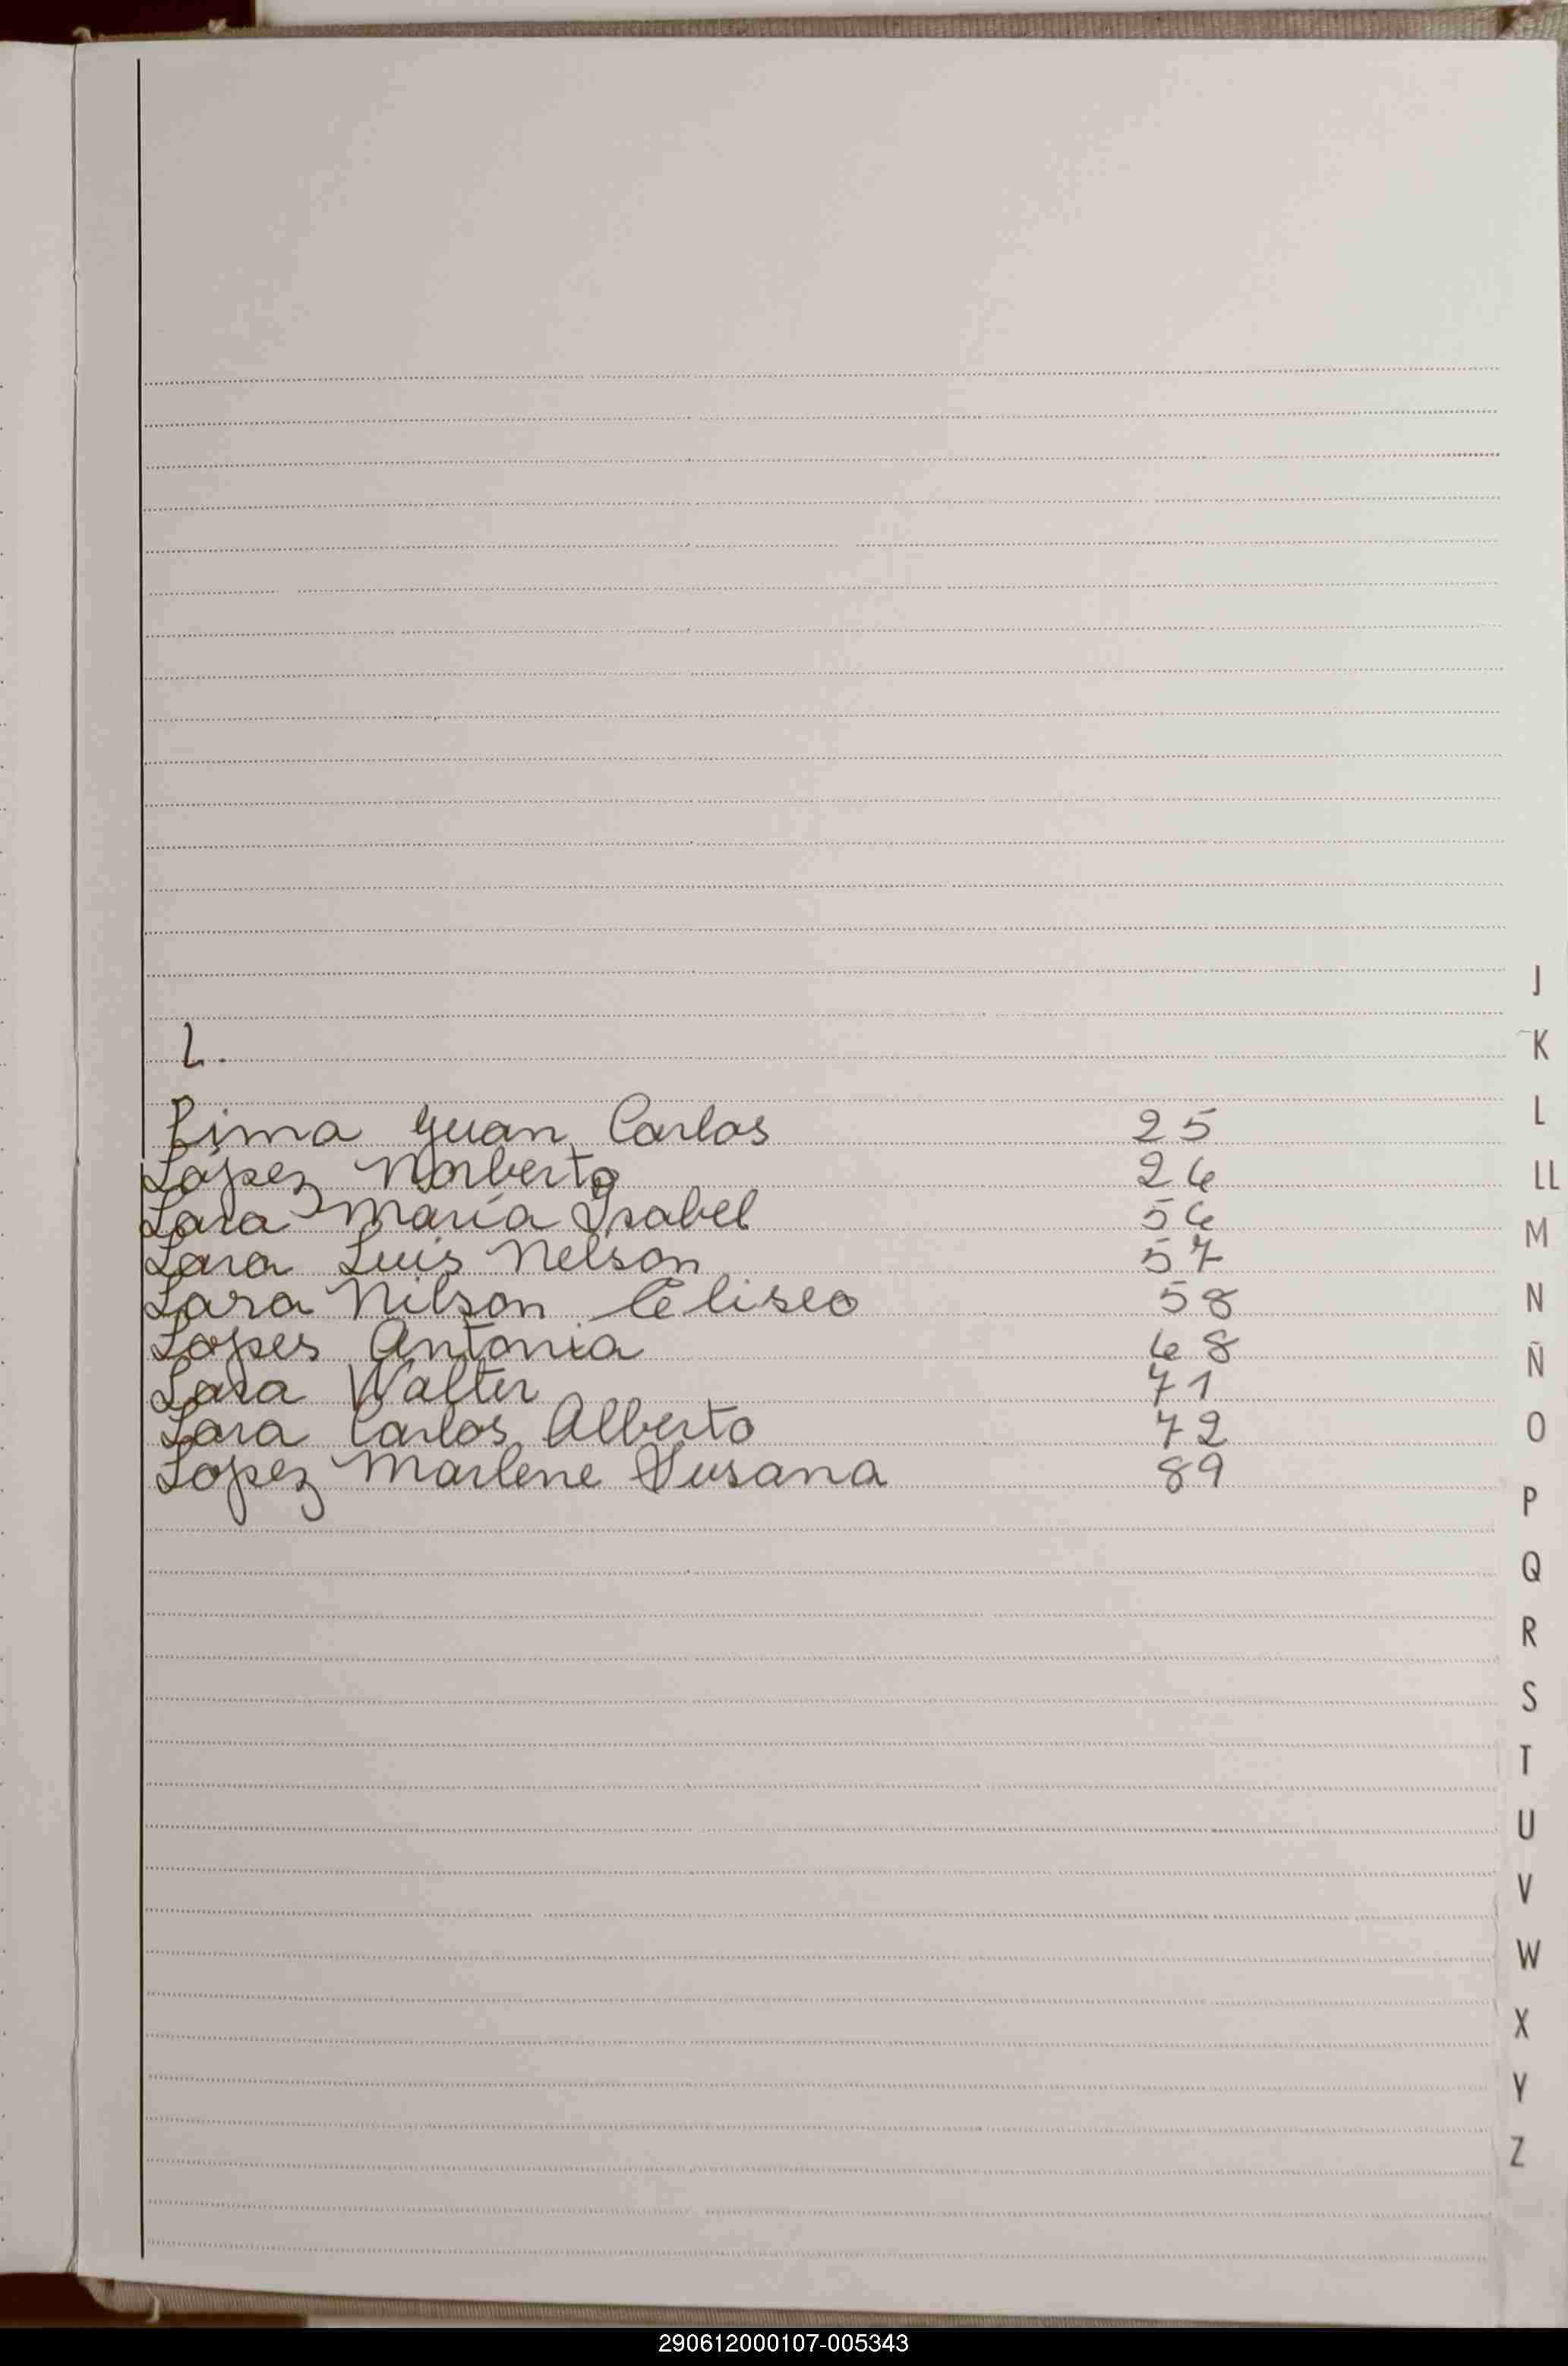 L.
Lima Juan Carlos 25
López Norberto 26
Lara María Isabel 56
Lara Luis Nelson 57
Lara Nilson Eliseo 58
Lopes Antonia 68
Lara Walter 71
Lara Carlos Alberto 72
Lopez Marlene Susana 89
J
K
L
LL
M
N
Ñ
O
P
Q
R
S
T
U
V
W
X
Y
Z
290612000107-005343